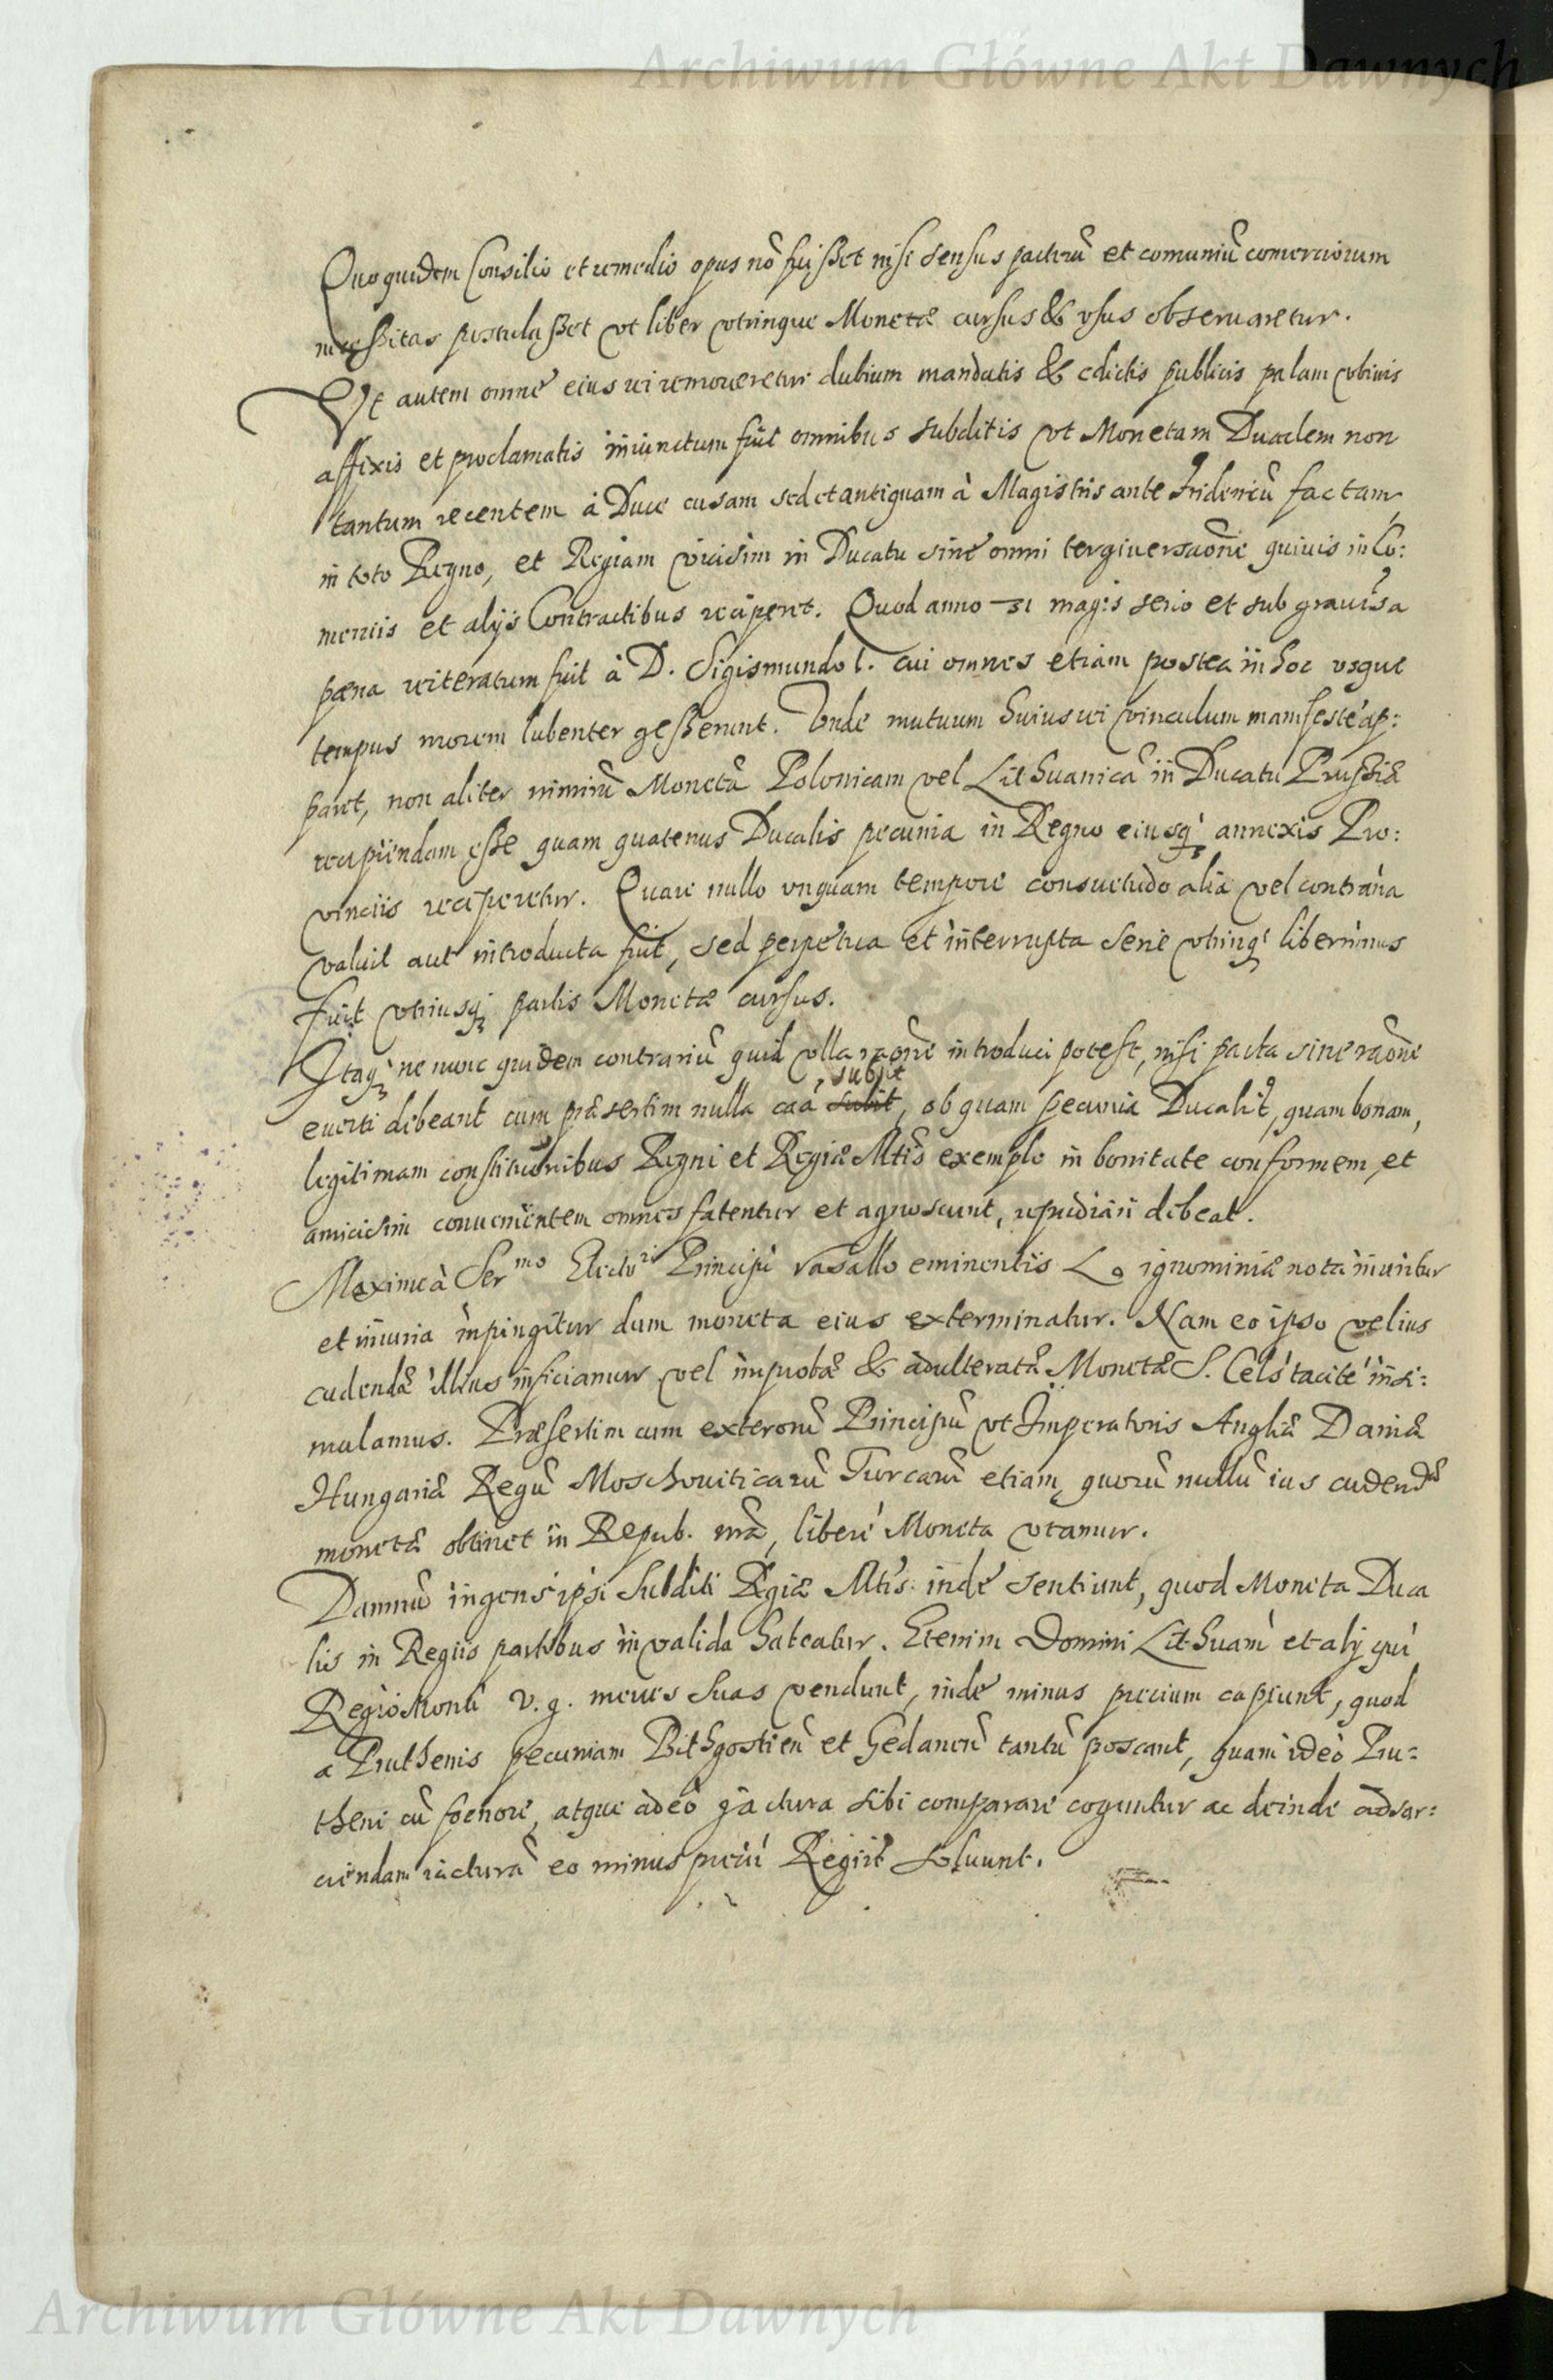 Archiwum Główne Akt Dawnych
Quo quidem Consilio et remedio opus nō fuisset nisi sensus pactorū et comuniū comerciorum
necessitas postulasset vt liber vtrinque Monetæ cursus & vsus obseruaretur.
Vt autem omne eius rei remoueretur dubium mandatis & edictis publicis palam vbiuis
affixis et proclamatis iniunctum fuit omnibus subditis vt Monetam Ducalem non
tantum recentem à Duce cusam sed et antiquam à Magistris ante Fridericū factam,
in toto Regno, et Regiam vicissim in Ducatu sine omni tergiuersaōne quiuis in Co:
mercis et alijs Contractibus reciperet. Quod anno 31 magis serio et sub grauissa
pæna reiteratum fuit à D. Sigismundo I. cui omnes etiam postea in hoc vsque
tempus morem lubenter gesserunt. Vnde mutuum huius rei vinculum manifestè ap:
paret, non aliter nimirū Monetā Polonicam vel Lithuanicā in Ducatu Prussiæ
recipiendam esse quam quatenus Ducalis pecunia in Regno eiusq́ annexis Pro:
vinciis reciperetur. Quare nullo vnquam tempore consuetudo alia vel contraria
valuit aut introducta fuit, sed perpetua et interrupta serie vtrinq́ liberrimus
fuit vtriusq́ partis Monetæ cursus.
Itaq́ ne nunc quidem contrariū quid vlla raōne introduci potest, nisi pacta sine raōne
subsit
euerti debeant cum præsertim nulla caā subit, ob quam pecunia Ducalis, quam bonam,
legitimam constitutionibus Regni et Regiæ Mtis exemplo in bonitate conformem et
amicissim conuenientem omnes fatentur et agnoscunt, repudiari debeat.
Maxime à Ser mo Elector ri Principi vasallo eminentis ignominiæ nota inuritur
et iniuria impingitur dum moneta eius exterminatur. Nam eo ipso vel ius
cudendæ illius inficiamur vel improbæ & adulteratæ Monetæ S. Cels tacitè insi:
mulamus. Præsertim cum exterorū Principū vt Imperatoris Angliæ Daniæ
Hungariæ Regū Moschouiticarū Turcarū etiam, quorū nullū ius cudendæ
monetæ obtinet in Repub. nrā, liberè Moneta vtamur.
Damnū ingens ipsi Subditi Regiæ Mtis inde sentiunt, quod Moneta Duca
lis in Regiis partibus inualida habeatur. Etenim Domini Lithuani et alij qui
RegioMonti v. g. merces suas vendunt, inde minus precium capiunt, quod
a Pruthenis pecuniam Bithgostien̄ et Gedanen̄ tantū poscant, quam ideò Pru=
theni cū foenore, atque adeò iactura sibi comparare coguntur ac deinde ad sar:
ciendam iacturā eo minus precii Regiis soluunt.
Archiwum Główne Akt Dawnych